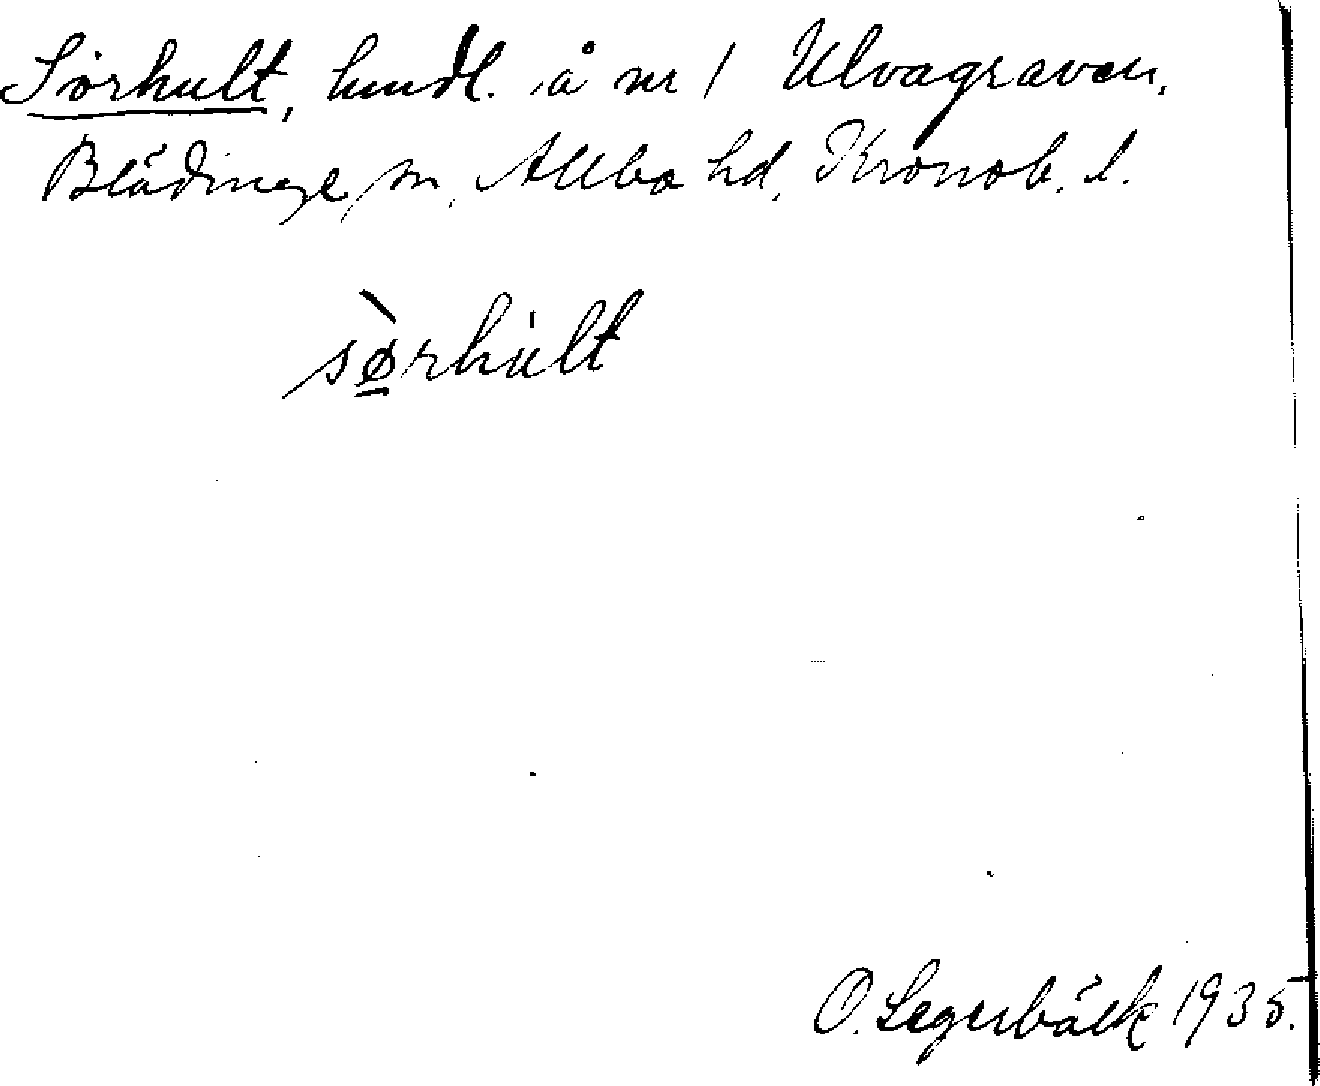 Sörhult, hmdl. å nr 1 Ulvagraven,
Blädinge sn, Allbo hd, Kronob. l.
sø̠̀rhu̍lt
O. Segerbäck 1935.